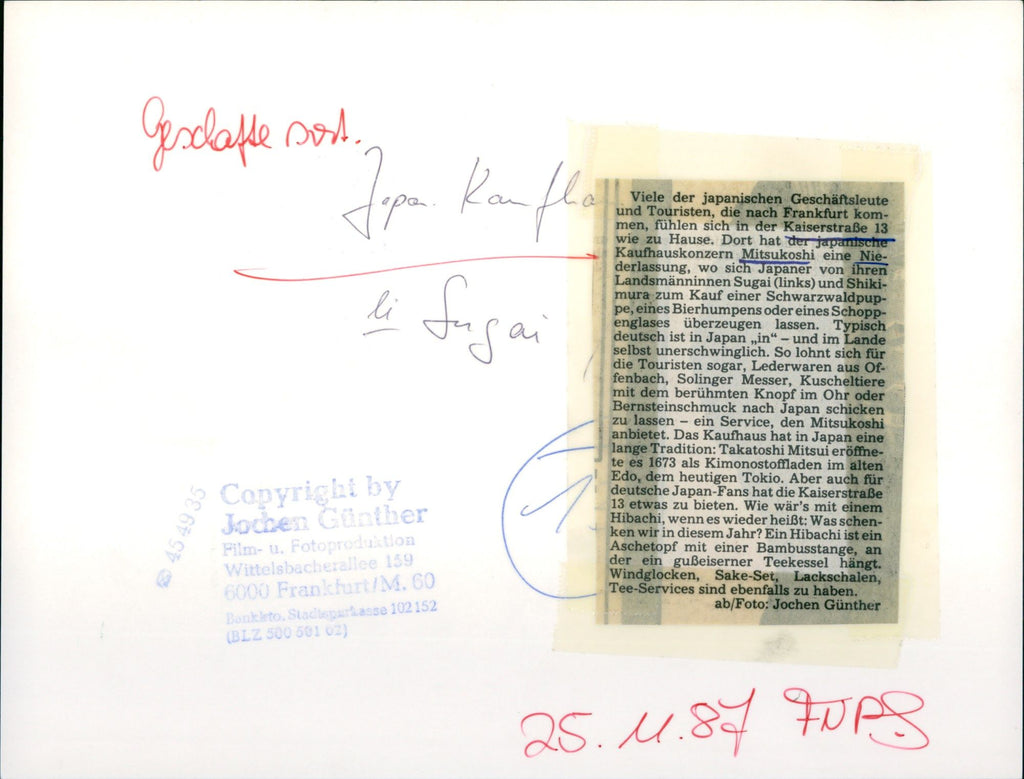 Geschäfte sort.
Japan. Kaufha
li Sugai
Viele der japanischen Geschäftsleute
und Touristen, die nach Frankfurt kom-
men, fühlen sich in der Kaiserstraße 13
wie zu Hause. Dort hat der japanische
Kaufhauskonzern Mitsukoshi eine Nie-
derlassung, wo sich Japaner von ihren
Landsmänninnen Sugai (links) und Shiki-
mura zum Kauf einer Schwarzwaldpup-
pe, eines Bierhumpens oder eines Schopp-
englases überzeugen lassen. Typisch
deutsch ist in Japan „in“ – und im Lande
selbst unerschwinglich. So lohnt sich für
die Touristen sogar, Lederwaren aus Of-
fenbach, Solinger Messer, Kuscheltiere
mit dem berühmten Knopf im Ohr oder
Bernsteinschmuck nach Japan schicken
zu lassen – ein Service, den Mitsukoshi
anbietet. Das Kaufhaus hat in Japan eine
lange Tradition: Takatoshi Mitsui eröffne-
te es 1673 als Kimonostoffladen im alten
Edo, dem heutigen Tokio. Aber auch für
deutsche Japan-Fans hat die Kaiserstraße
13 etwas zu bieten. Wie wär's mit einem
Hibachi, wenn es wieder heißt: Was schen-
ken wir in diesem Jahr? Ein Hibachi ist ein
Aschetopf mit einer Bambusstange, an
der ein gußeiserner Teekessel hängt.
Windglocken, Sake-Set, Lackschalen,
Tee-Services sind ebenfalls zu haben.
ab/Foto: Jochen Günther
Copyright by
Jochen Günther
Film- u. Fotoproduktion
Wittelsbacherallee 159
6000 Frankfurt/M. 60
Bankkto. Stadtsparkasse 102152
(BLZ 500 501 02)
☎ 45 49 35
25. 11. 87 FNP